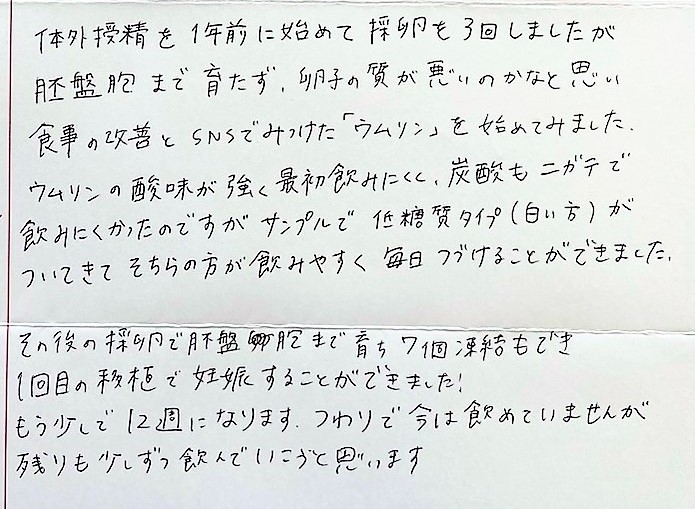 体外授精を1年前に始めて採卵を3回しましたが
胚盤胞まで育たず、卵子の質が悪いのかなと思い
食事の改善とSNSでみつけた「ウムリン」を始めてみました.
ウムリンの酸味が強く最初飲みにくく、炭酸もニガテで
飲みにくかったのですがサンプルで低糖質タイプ(白い方)が
ついてきてそちらの方が飲みやすく毎日つづけることができました.
その後の採卵で胚盤胞まで育ち7個凍結もでき
1回目の移植で妊娠することができました!
もう少しで12週になります.つわりで今は飲めていませんが
残りも少しずつ飲んでいこうと思います